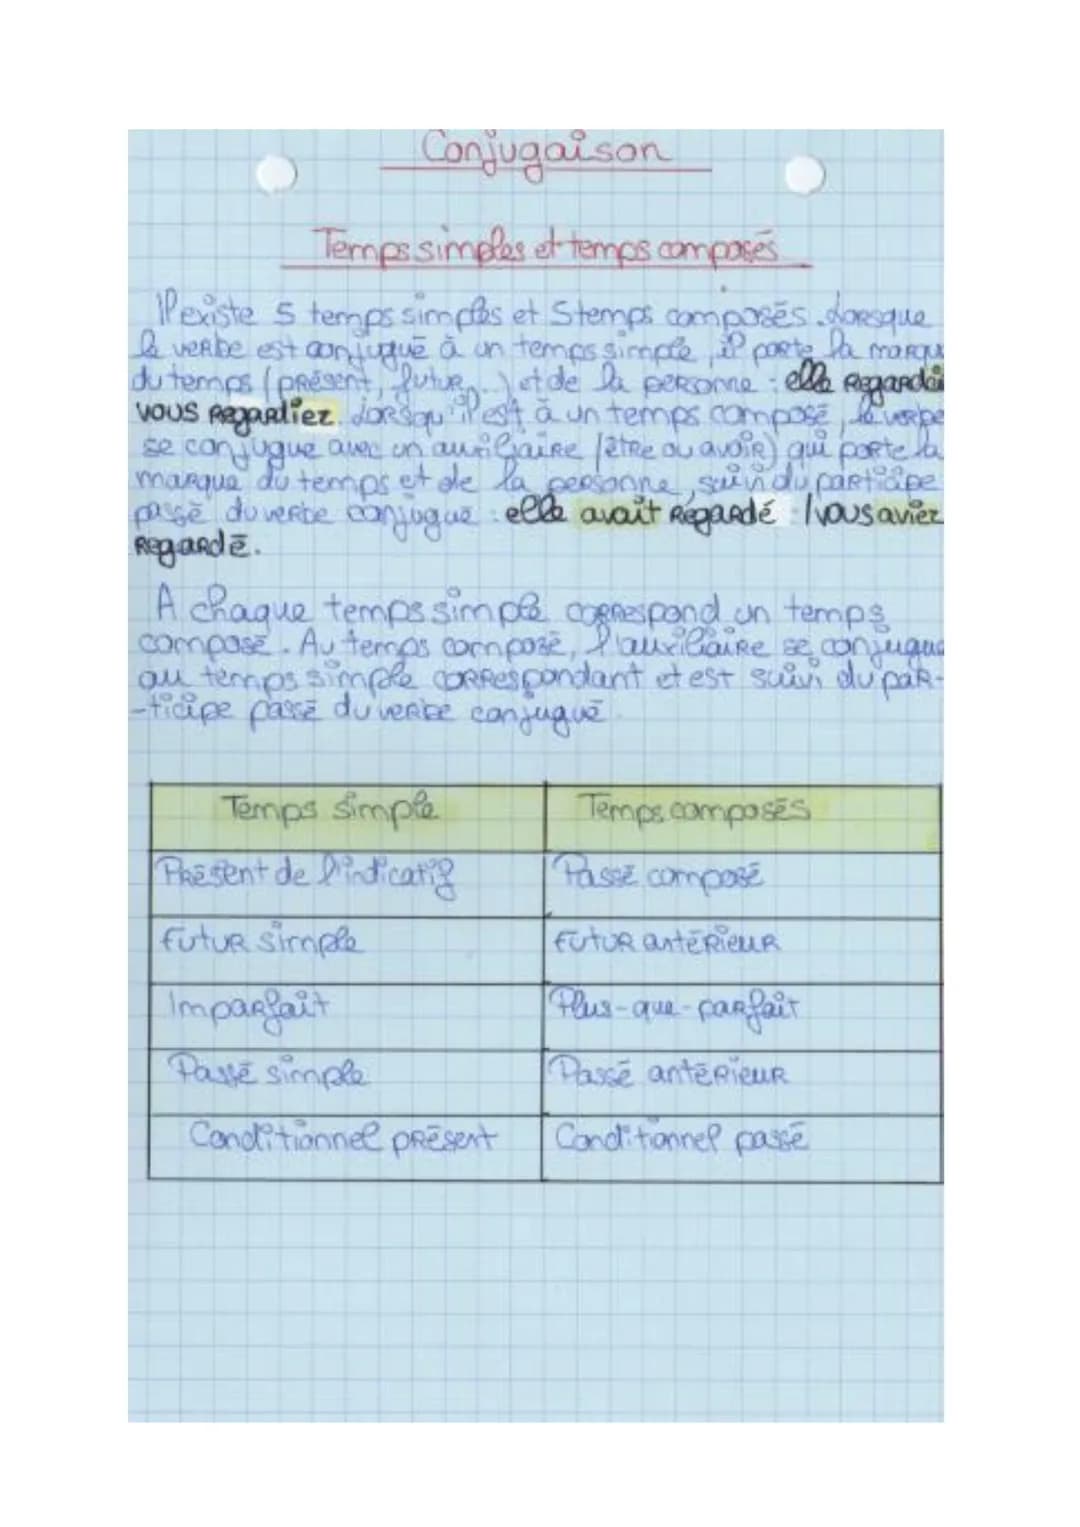 Conjugaison
Temps simples et temps composés
Il existe 5 temps simples et 5 temps composés. Lorsque
le verbe est conjugué à un temps simple, il porte la marqu
du temps (présent, futur...) et de la personne : elle regardai
vous regardiez. Lorsqu'il est à un temps composé, le verbe
se conjugue avec un auxiliaire (être ou avoir) qui porte la
marque du temps et de la personne, suivi du participe
passé du verbe conjugué : elle avait regardé / vous aviez
regardé.
A chaque temps simple correspond un temps
composé. Au temps composé, l'auxiliaire se conjugue
au temps simple correspondant et est suivi du par-
-ticipe passé du verbe conjugué.
Temps simple Temps composés
Présent de l'indicatif Passé composé
Futur simple Futur antérieur
Imparfait Plus-que-parfait
Passé simple Passé antérieur
Conditionnel présent Conditionnel passé